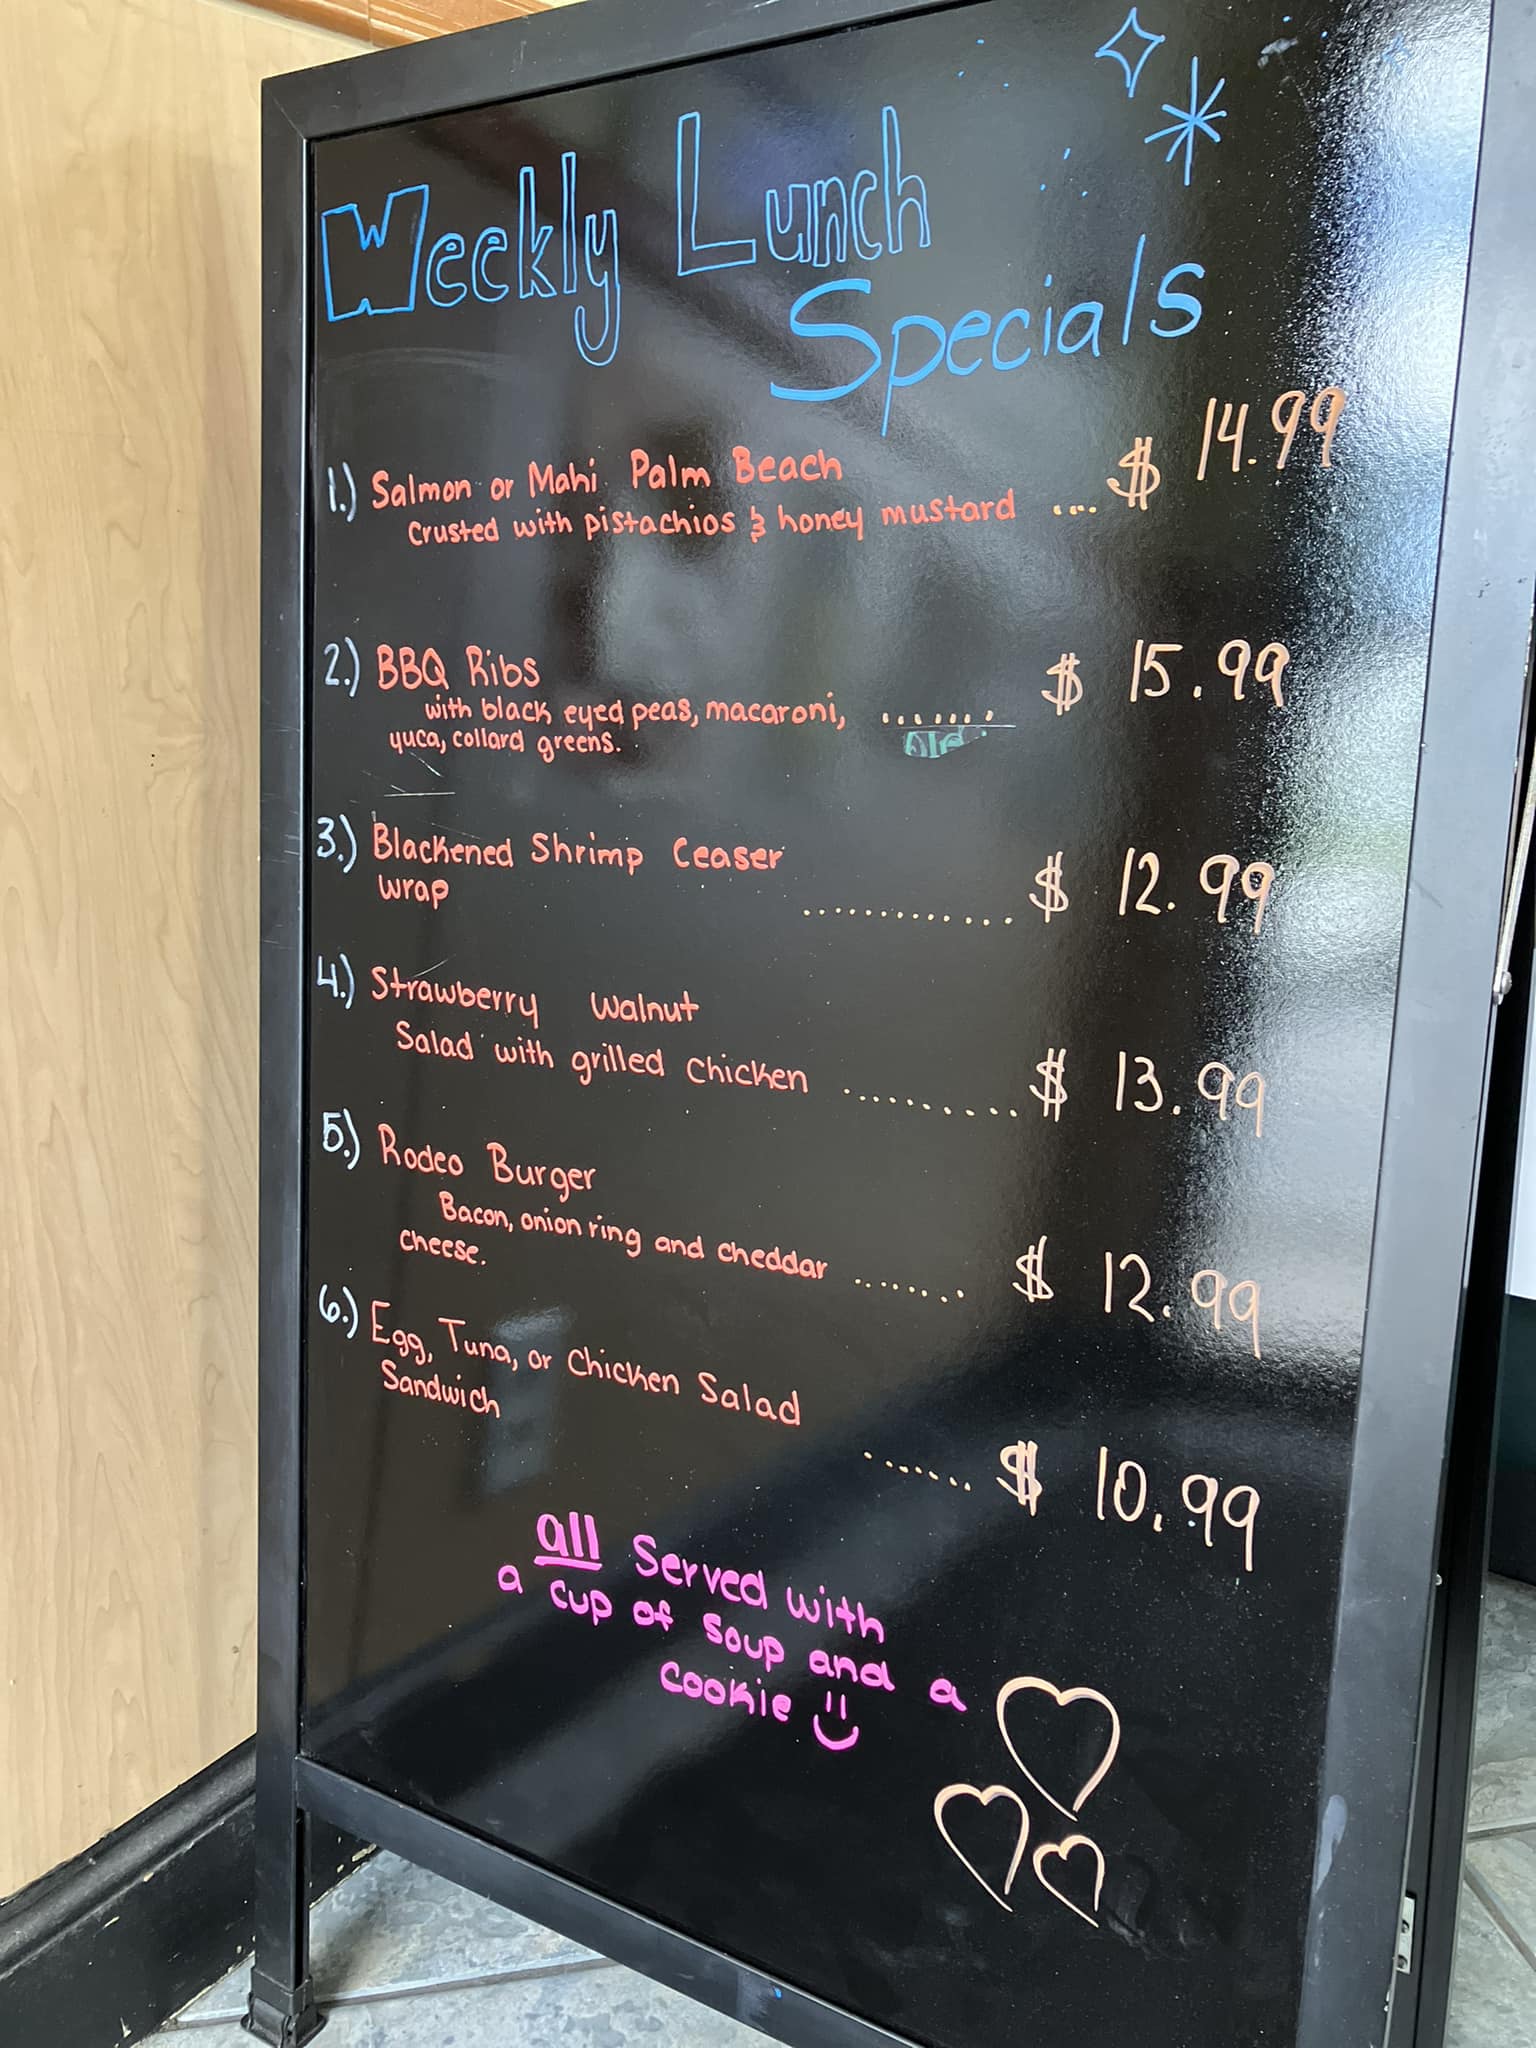 Weekly Lunch
Specials
1.) Salmon or Mahi Palm Beach
crusted with pistachios & honey mustard .... $ 14.99
2.) BBQ Ribs
with black eyed peas, macaroni, ....... $ 15.99
yuca, collard greens.
3.) Blackened Shrimp Ceaser
wrap ............. $ 12.99
4.) Strawberry walnut
Salad with grilled chicken .......... $ 13.99
5.) Rodeo Burger
Bacon, onion ring and cheddar ........ $ 12.99
cheese.
6.) Egg, Tuna, or Chicken Salad
Sandwich ....... $ 10.99
all Served with
a cup of soup and a
cookie